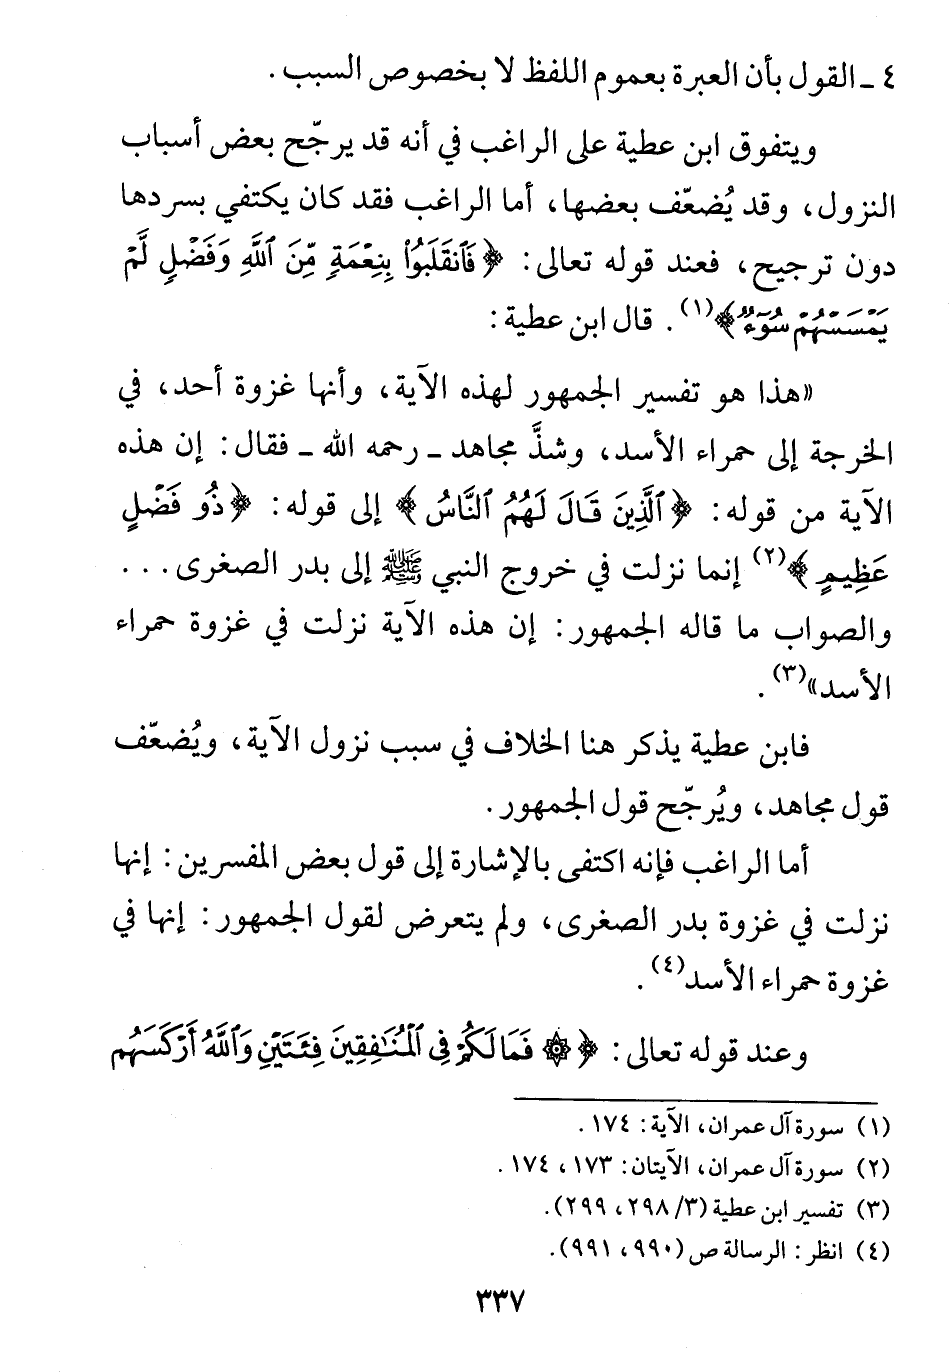 ٤ ـ القول بأن العبرة بعموم اللفظ لا بخصوص السبب .
ويتفوق ابن عطية على الراغب في أنه قد يرجّح بعض أسباب
النزول، وقد يُضعّف بعضها، أما الراغب فقد كان يكتفي بسردها
دون ترجيح، فعند قوله تعالى: ﴿فَٱنقَلَبُوا۟ بِنِعْمَةٍ مِّنَ ٱللَّهِ وَفَضْلٍ لَّمْ
يَمْسَسْهُمْ سُوٓءٌ﴾(١). قال ابن عطية:
«هذا هو تفسير الجمهور لهذه الآية، وأنها غزوة أحد، في
الخرجة إلى حمراء الأسد، وشذَّ مجاهد ـ رحمه الله ـ فقال: إن هذه
الآية من قوله: ﴿ٱلَّذِينَ قَالَ لَهُمُ ٱلنَّاسُ﴾ إلى قوله: ﴿ذُو فَضْلٍ
عَظِيمٍ﴾(٢) إنما نزلت في خروج النبي ﷺ إلى بدر الصغرى . . .
والصواب ما قاله الجمهور: إن هذه الآية نزلت في غزوة حمراء
الأسد»(٣).
فابن عطية يذكر هنا الخلاف في سبب نزول الآية، ويُضعّف
قول مجاهد، ويُرجّح قول الجمهور.
أما الراغب فإنه اكتفى بالإشارة إلى قول بعض المفسرين: إنها
نزلت في غزوة بدر الصغرى، ولم يتعرض لقول الجمهور: إنها في
غزوة حمراء الأسد(٤).
وعند قوله تعالى: ﴿۞ فَمَا لَكُمْ فِى ٱلْمُنَـٰفِقِينَ فِئَتَيْنِ وَٱللَّهُ أَرْكَسَهُم
(١) سورة آل عمران، الآية: ١٧٤.
(٢) سورة آل عمران، الآيتان: ١٧٣، ١٧٤.
(٣) تفسير ابن عطية (٣/ ٢٩٨، ٢٩٩).
(٤) انظر: الرسالة ص (٩٩٠، ٩٩١).
٣٣٧